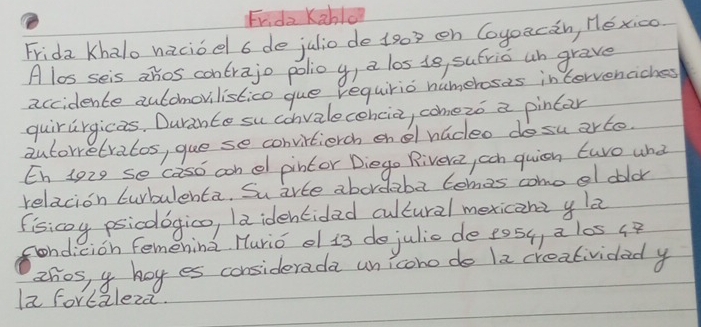 Frida Kahlo
Frida Khalo nació el 6 de julio de 1907 en Coyoacán, México.
A los seis años contrajo polio y, a los 18, sufrió un grave
accidente automovilístico que requirió numerosas intervenciones
quirúrgicas. Durante su convalecencia, comezó a pintar
autorretratos, que se convirtieron en el núcleo de su arte.
En 1929 se casó con el pintor Diego Rivera, con quien tuvo una
relación turbulenta. Su arte abordaba temas como el dolor
físico y psicológico, la identidad cultural mexicana y la
condición femenina. Murió el 13 de julio de 1954, a los 47
años, y hoy es considerada un icono de la creatividad y
la fortaleza.